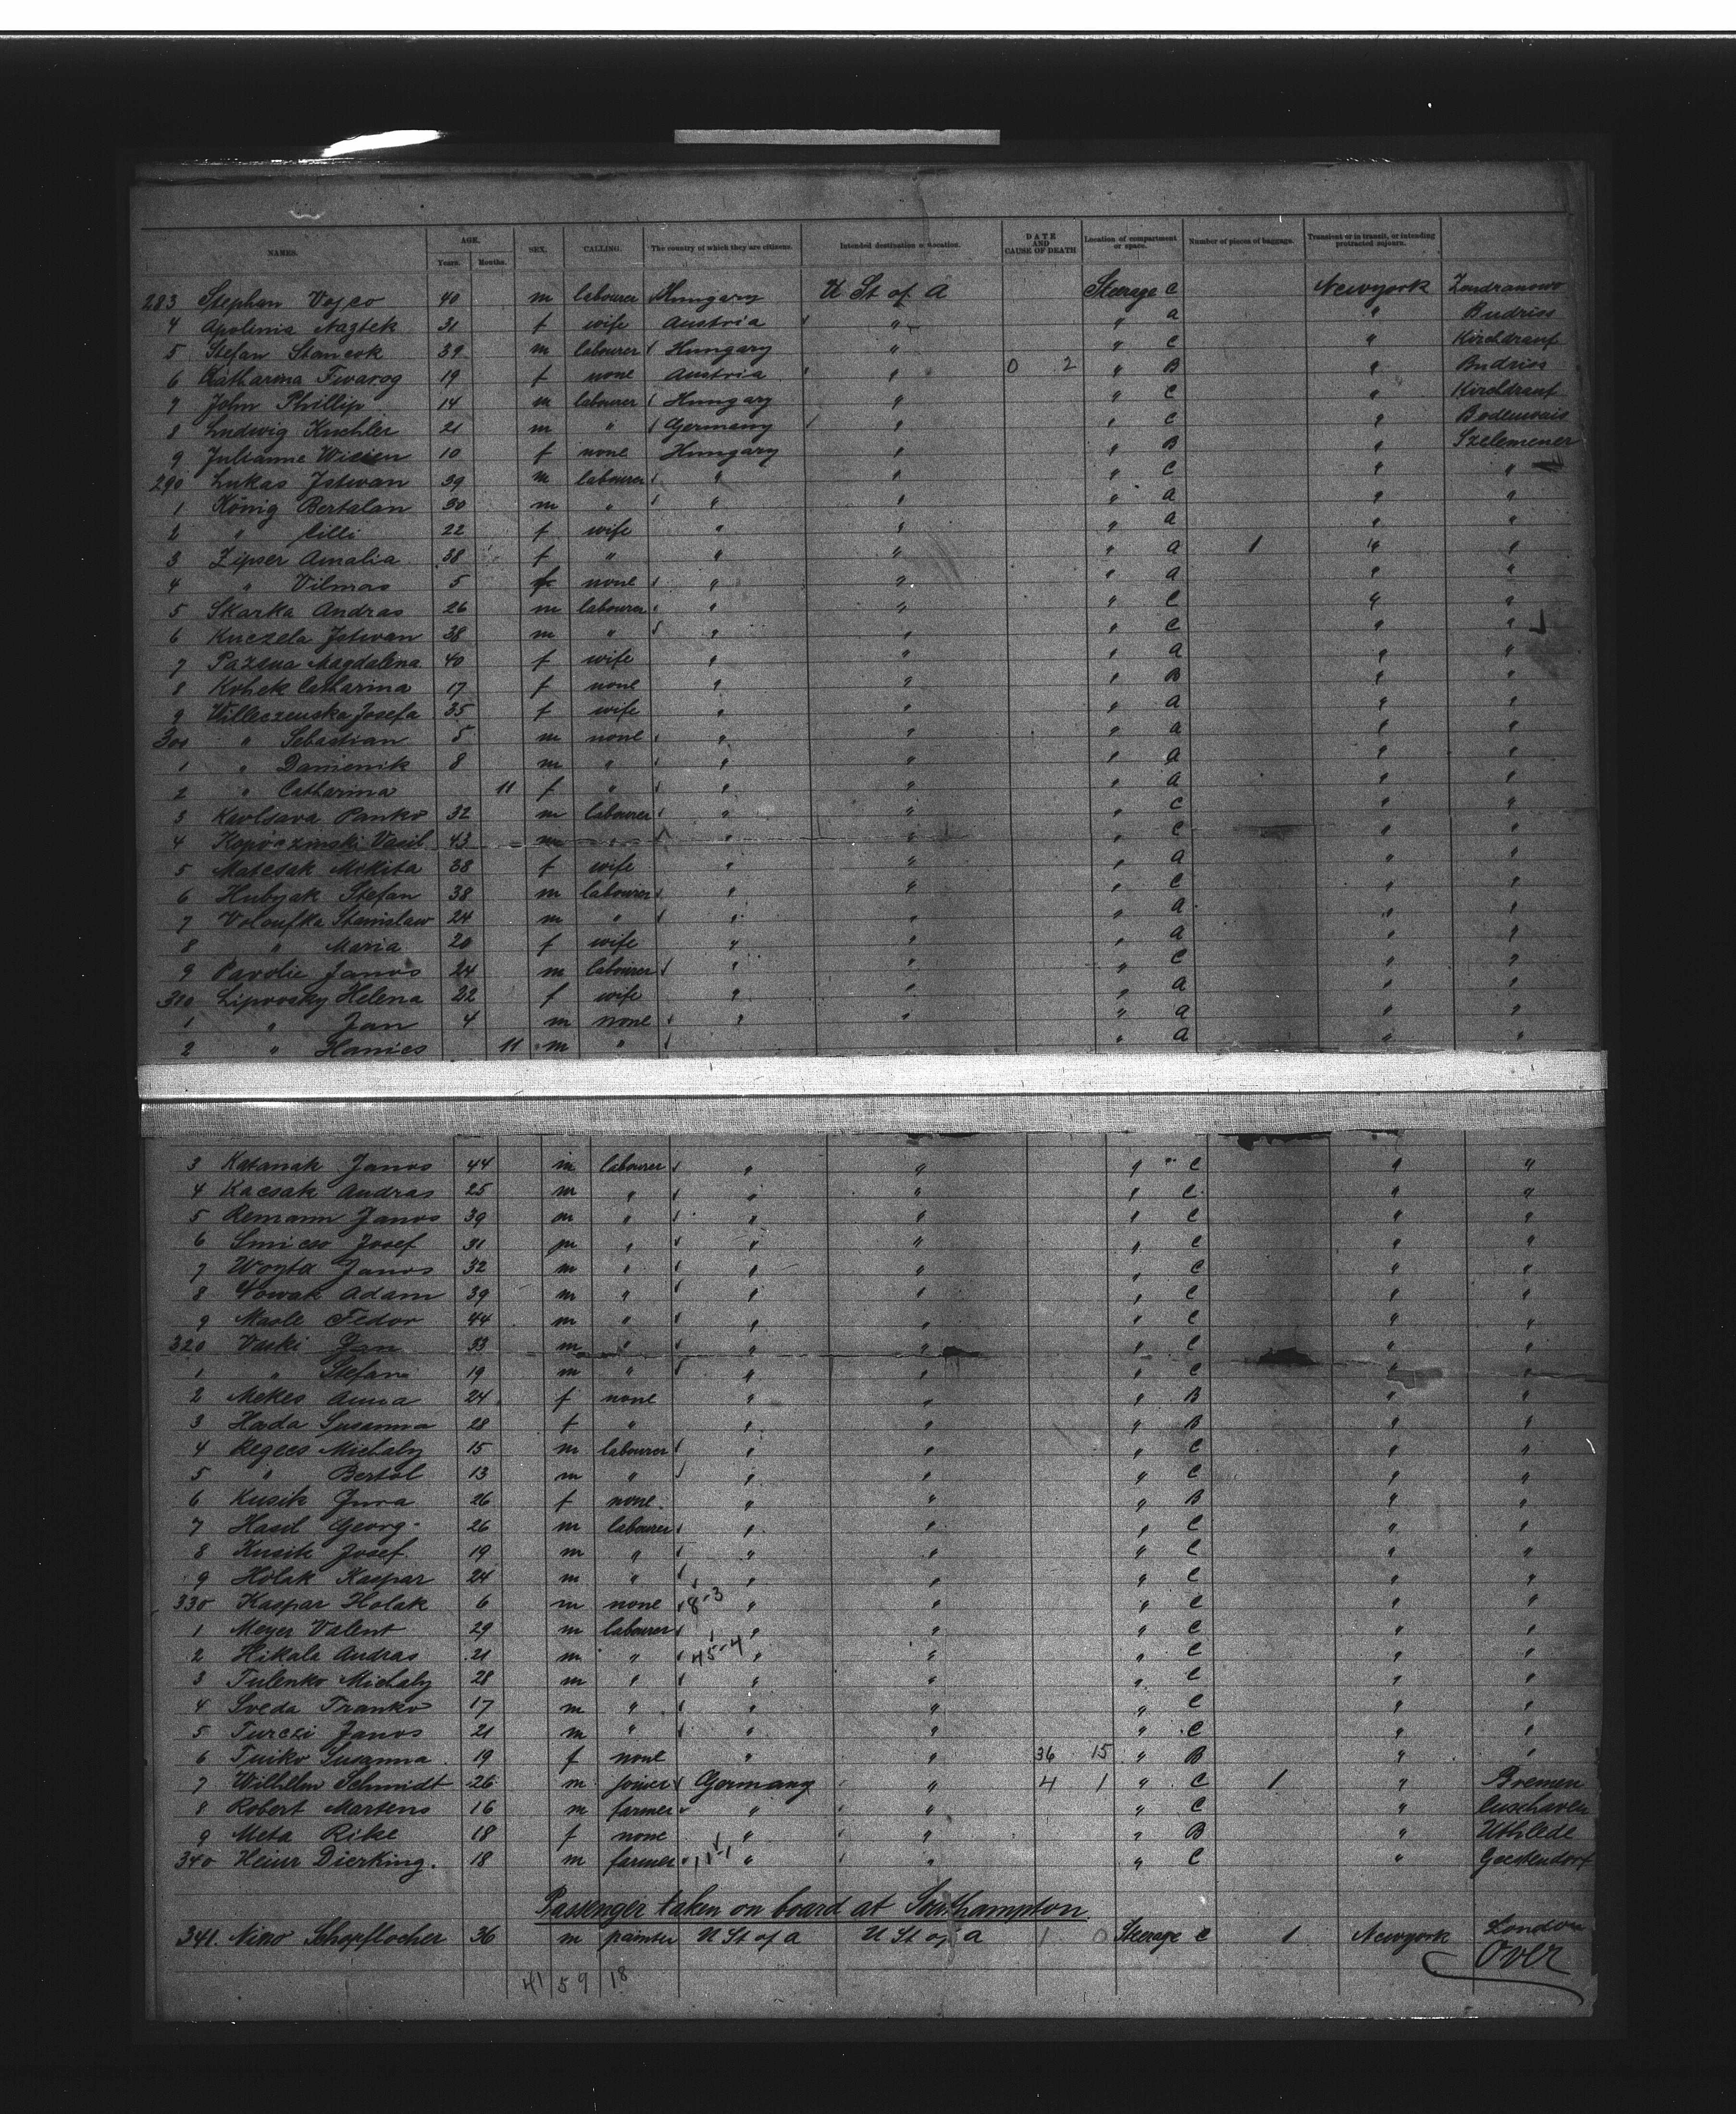 NAMES. AGE. Years. Months. SEX. CALLING. The country of which they are citizens. Intended destination or location. DATE AND CAUSE OF DEATH Location of compartment or space. Number of pieces of baggage. Transient or in transit, or intending protracted sojourn.
283 Stephan Vojco 40 m labourer Hungary U St of A Steerage C Newyork Zondranowo
4 Apolinia Naztek 31 f wife Austria " " a " Budriss
5 Stefan Stancok 39 m labourer Hungary " " C " Kirchdrauf
6 Catharina Twarog 19 f none Austria " 0 2 " B " Budriss
7 John Phillip 14 m labourer Hungary " " C " Kirchdrauf
8 Ludwig Kuchler 21 m " Germany " " C " Bodenmais
9 Julianne Wicien 10 f none Hungary " " B " Szelemener
290 Lukas Istwan 39 m labourer " " " C " "
1 König Bertalan 30 m " " " " a " "
2 " Cilli 22 f wife " " " a " "
3 Zipser Amalia 38 f " " " " a 1 " "
4 " Vilmas 5 none " " " a " "
5 Skarka Andras 26 m labourer " " " C " "
6 Kuczela Istwan 38 m " " " " C " "
7 Pazsua Magdalena 40 f wife " " " a " "
8 Kohek Catharina 17 f none " " " B " "
9 Willeczenska Josefa 35 f wife " " " a " "
300 " Sebastian 5 m none " " " a " "
1 " Damienik 8 m " " " " a " "
2 " Catharina 11 f " " " " a " "
3 Kavlsava Panko 32 m labourer " " " C " "
4 Kopvazinski Vasil 43 m " " " " C " "
5 Matcsak Mikita 38 f wife " " " a " "
6 Hubyak Stefan 38 m labourer " " " C " "
7 Voloufka Stanislaw 24 m " " " " a " "
8 " Maria 20 f wife " " " a " "
9 Pavolic Janos 24 m labourer " " " C " "
310 Lipovsky Helena 22 f wife " " " a " "
1 " Jan 4 m none " " " a " "
2 " Hanics 11 m " " a " "
3 Katanak Janos 44 m labourer " " " C " "
4 Kacsak Andras 25 m " " " " C " "
5 Remann Janos 39 m " " " " C " "
6 Smicso Josef 31 m " " " " C " "
7 Woyta Janos 32 m " " " " C " "
8 Nowak Adam 39 m " " " " C " "
9 Masle Fedor 44 m " " " " C " "
320 Vaski Jan 33 m " " " " C " "
1 " Stefan 19 m " " " " C " "
2 Mekes Anna 24 f none " " " B " "
3 Hada Susanna 28 f " " " " B " "
4 Regecs Michaly 15 m labourer " " " C " "
5 " Bertol 13 m " " " " C " "
6 Kusik Jura 26 f none " " " B " "
7 Hasil Georg 26 m labourer " " " C " "
8 Kusik Josef 19 m " " " " C " "
9 Holak Kaspar 24 m " " " " C " "
330 Kaspar Holak 6 m none 8-3 " " " C " "
1 Meyer Valent 29 m labourer " " " C " "
2 Hikala Andras 21 m " 45-4 " " " C " "
3 Tulenko Michaly 28 m " " " " C " "
4 Sveda Franko 17 m " " " " C " "
5 Turczi Janos 21 m " " " " C " "
6 Tuiko Susanna 19 f none " " 36 15 " B " "
7 Wilhelm Schmidt 26 m joiner Germany " 4 1 " C 1 " Bremen
8 Robert Martens 16 m farmer " " " C " Cuxhaven
9 Meta Rike 18 f none " " " B " Uthlede
340 Heinr Dierking. 18 m farmer 11-1 " " " C " Geestendorf
Passenger taken on board at Southampton.
341. Nino Schopflocher 36 m painter U St of A U St of A 1 0 Steerage C 1 Newyork London
Over
41 59 18